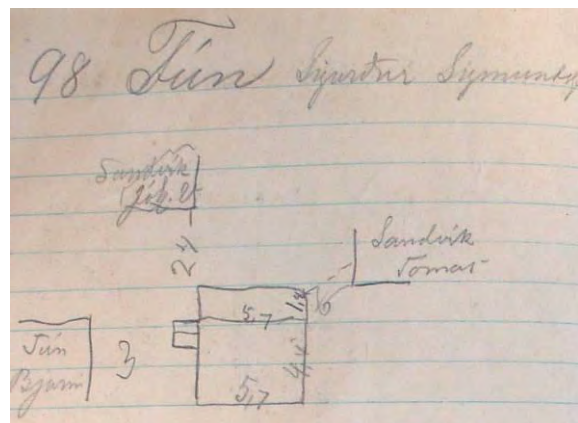 98 Tún Sigurður Sigmunds
Sandvík
Jóh. E
24
Sandvík
Tomas
5,7 1,4 6
Tún
Bjarni
3
4,4
5,7